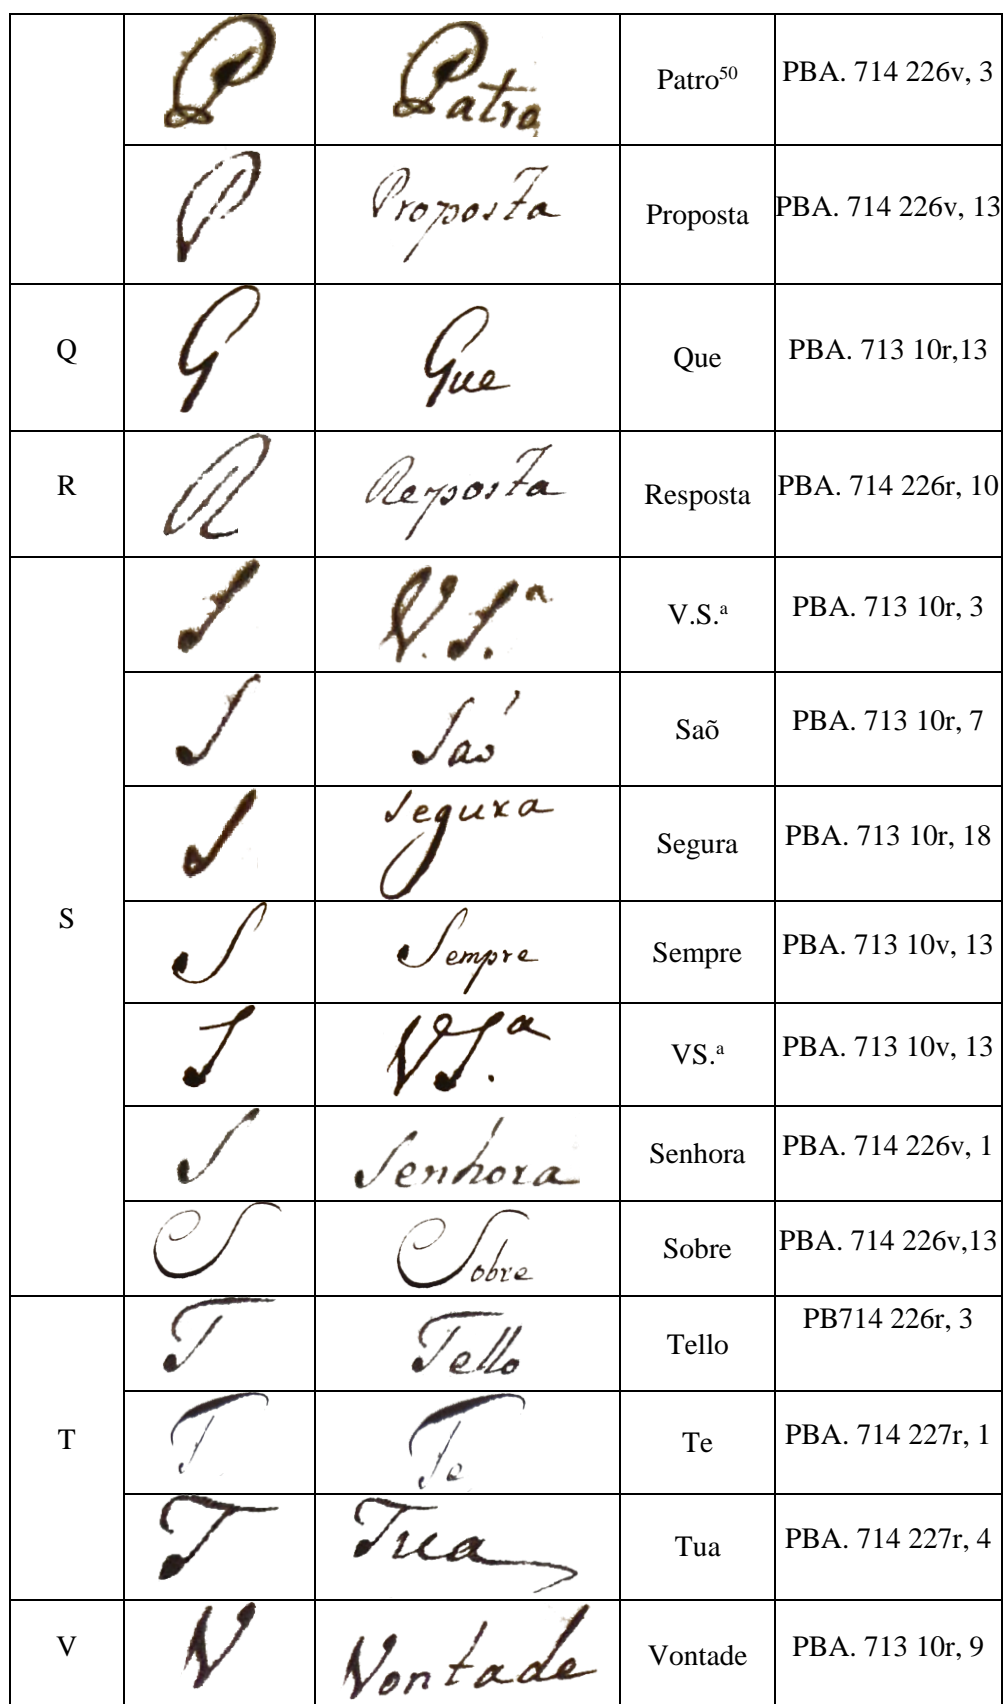 P Patro Patro⁵⁰ PBA. 714 226v, 3
P Proposta Proposta PBA. 714 226v, 13
Q Q Que Que PBA. 713 10r,13
R R Reposta Resposta PBA. 714 226r, 10
S S V.S.ª V.S.ª PBA. 713 10r, 3
S Saó Saõ PBA. 713 10r, 7
S Segura Segura PBA. 713 10r, 18
S Sempre Sempre PBA. 713 10v, 13
S VS.ª VS.ª PBA. 713 10v, 13
S Senhora Senhora PBA. 714 226v, 1
S Sobre Sobre PBA. 714 226v,13
T T Tello Tello PB714 226r, 3
T Te Te PBA. 714 227r, 1
T Tua Tua PBA. 714 227r, 4
V V Vontade Vontade PBA. 713 10r, 9